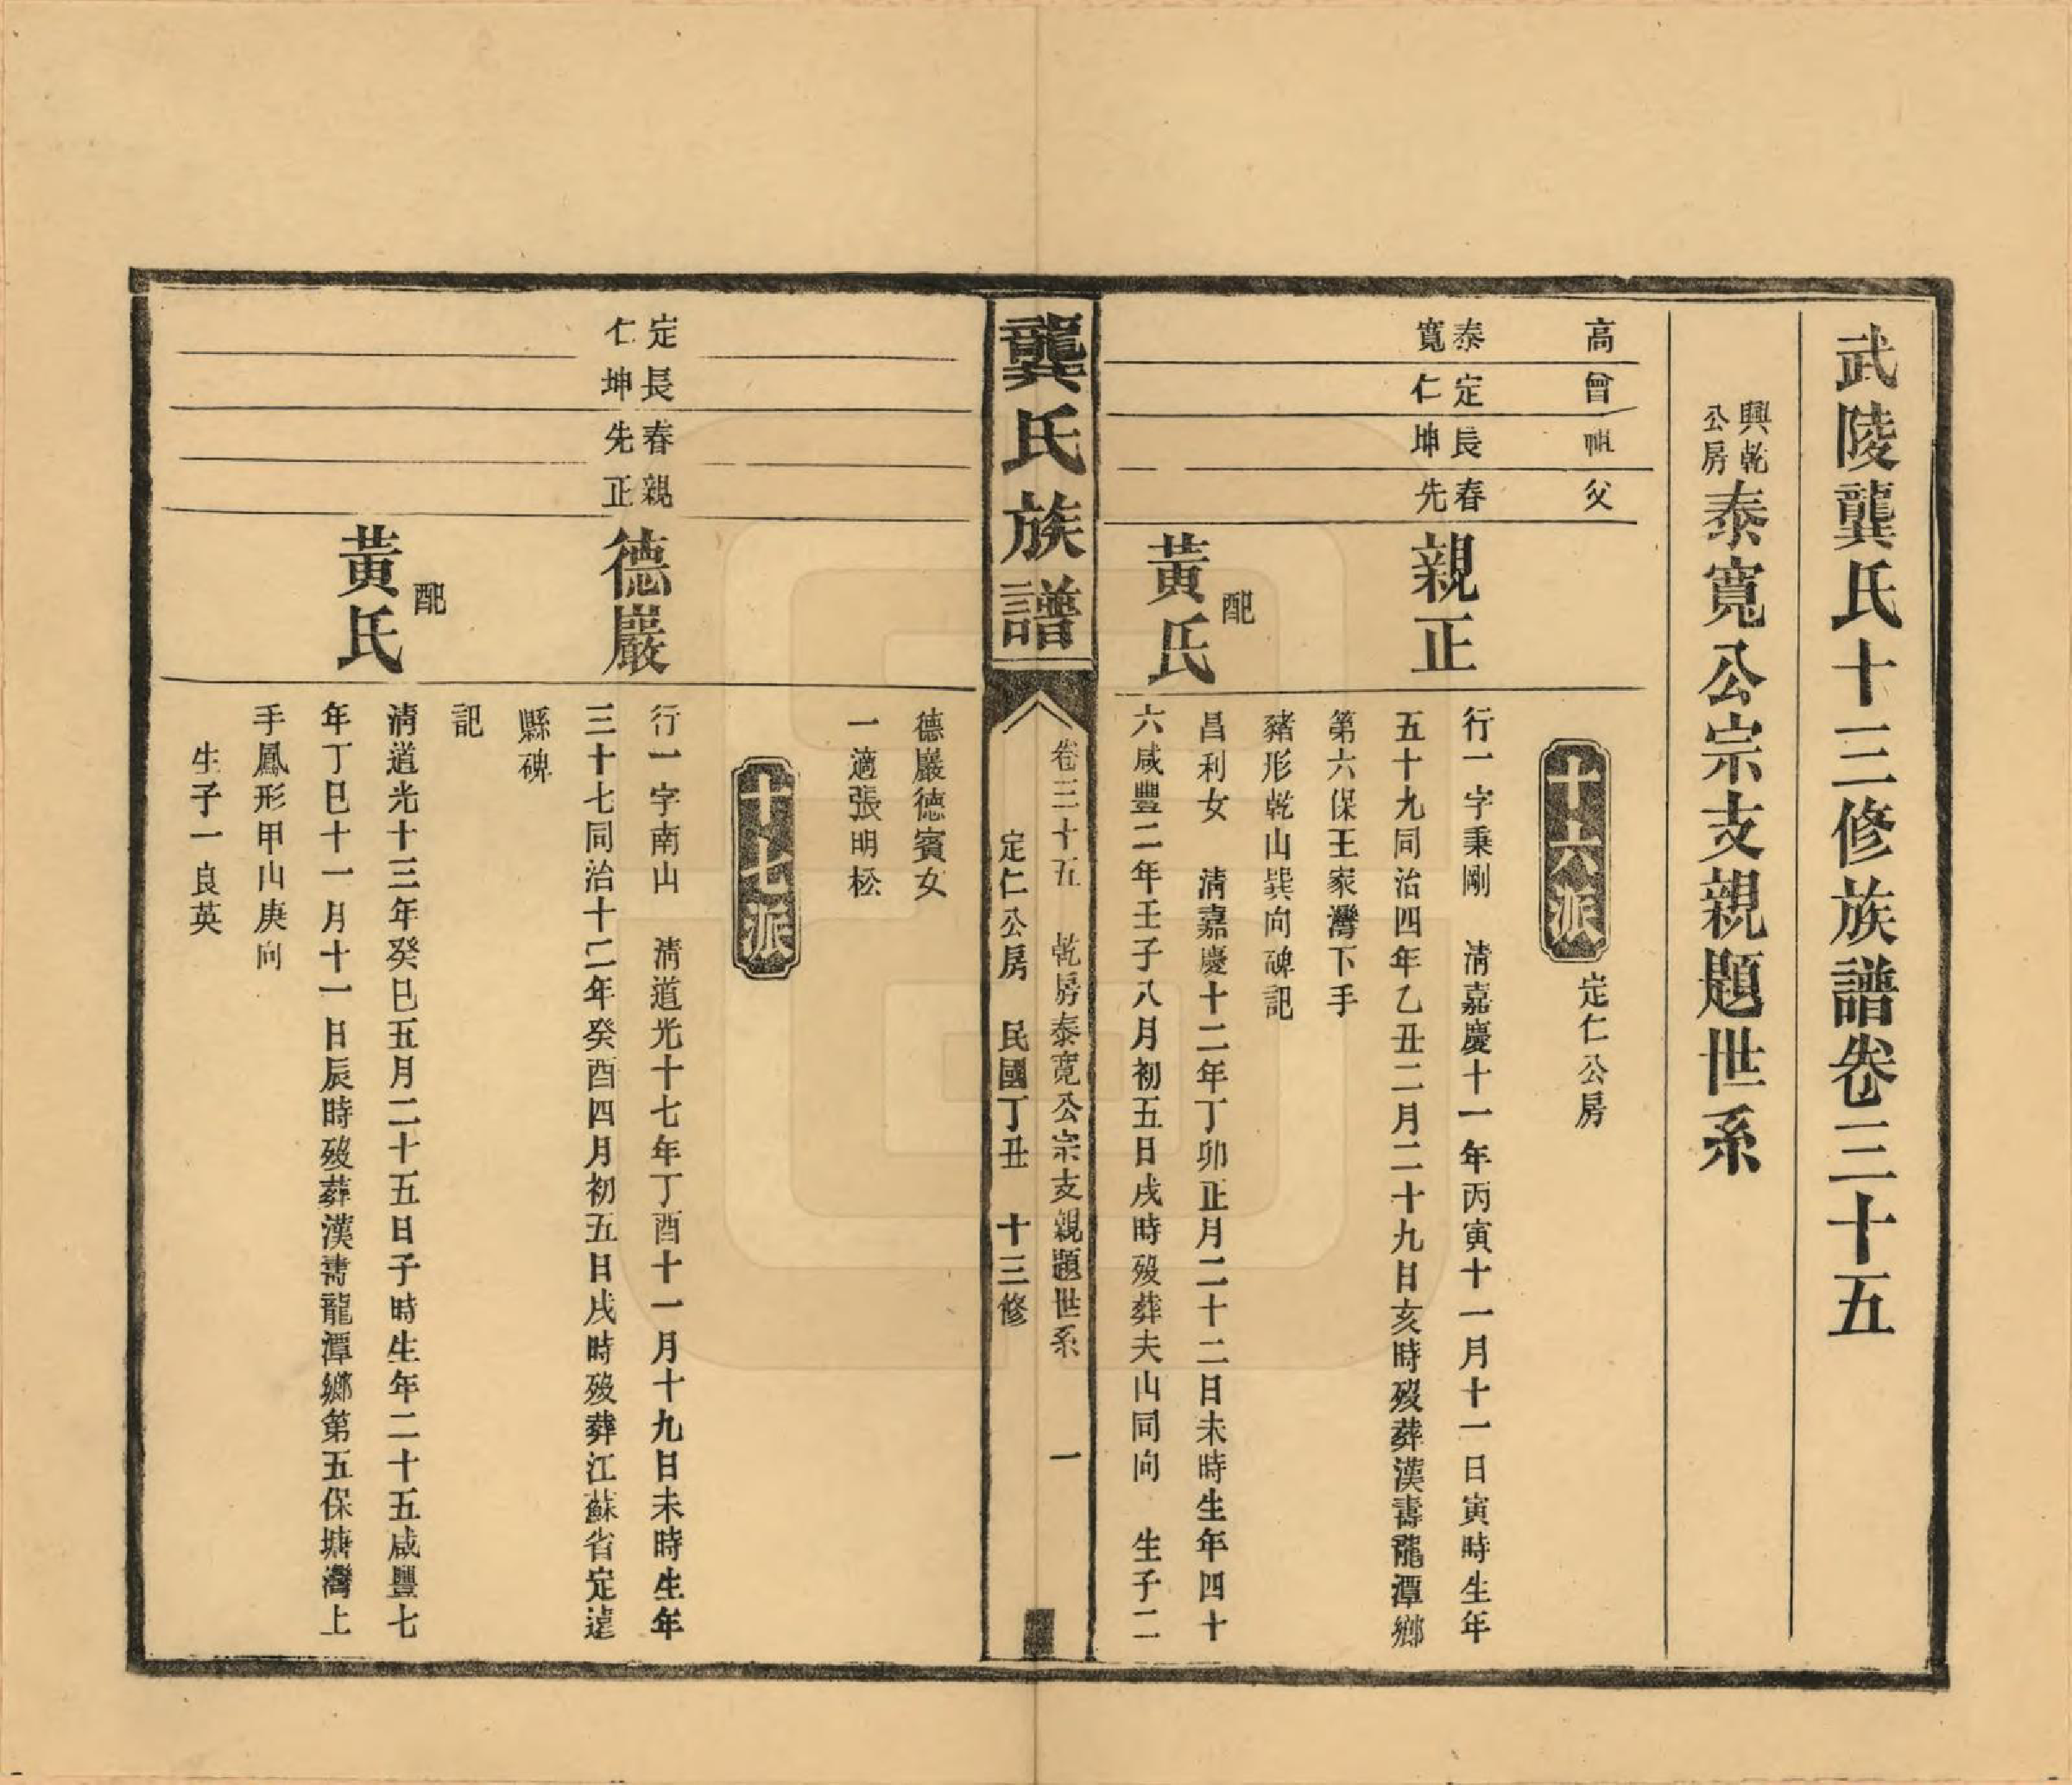 武陵龔氏十三修族譜卷三十五
興乾公房泰寬公宗支親題世系
高
曾
祖
父
十六派
定仁公房
泰寬
定仁
長坤
春先
親正
行一字秉剛　清嘉慶十一年丙寅十一月十一日寅時生年
五十九同治四年乙丑二月二十九日亥時歿葬漢壽龍潭鄉
第六保王家灣下手
豬形乾山巽向碑記
配
黃氏
昌利女　清嘉慶十二年丁卯正月二十二日未時生年四十
六咸豐二年壬子八月初五日戌時歿葬夫山同向　生子二
龔氏族譜
卷三十五　乾房泰寬公宗支親題世系　一
定仁公房　民國丁丑　十三修
德巖德賓女
一適張明松
十七派
定仁
長坤
春先
親正
德巖
行一字南山　清道光十七年丁酉十一月十九日未時生年
三十七同治十二年癸酉四月初五日戌時歿葬江蘇省定遠
縣碑
記
配
黃氏
清道光十三年癸巳五月二十五日子時生年二十五咸豐七
年丁巳十一月十一日辰時歿葬漢壽龍潭鄉第五保塘灣上
手鳳形甲山庚向
生子一良英